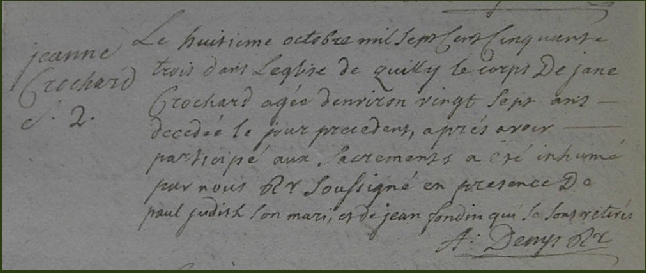 jeanne
Crochard
S. 2.
Le huitieme octobre mil sept Cens Cinquante
trois dans Leglise de quilly le corps De jane
Crochard agée denviron vingt sept ans
decedée le jour precedent, aprés avoir
participé aux Sacrements a été inhumé
par nous Rr Soussigné en presence De
paul judith Son mari, et de jean fondin qui se sont retirés
A: Denys Rr